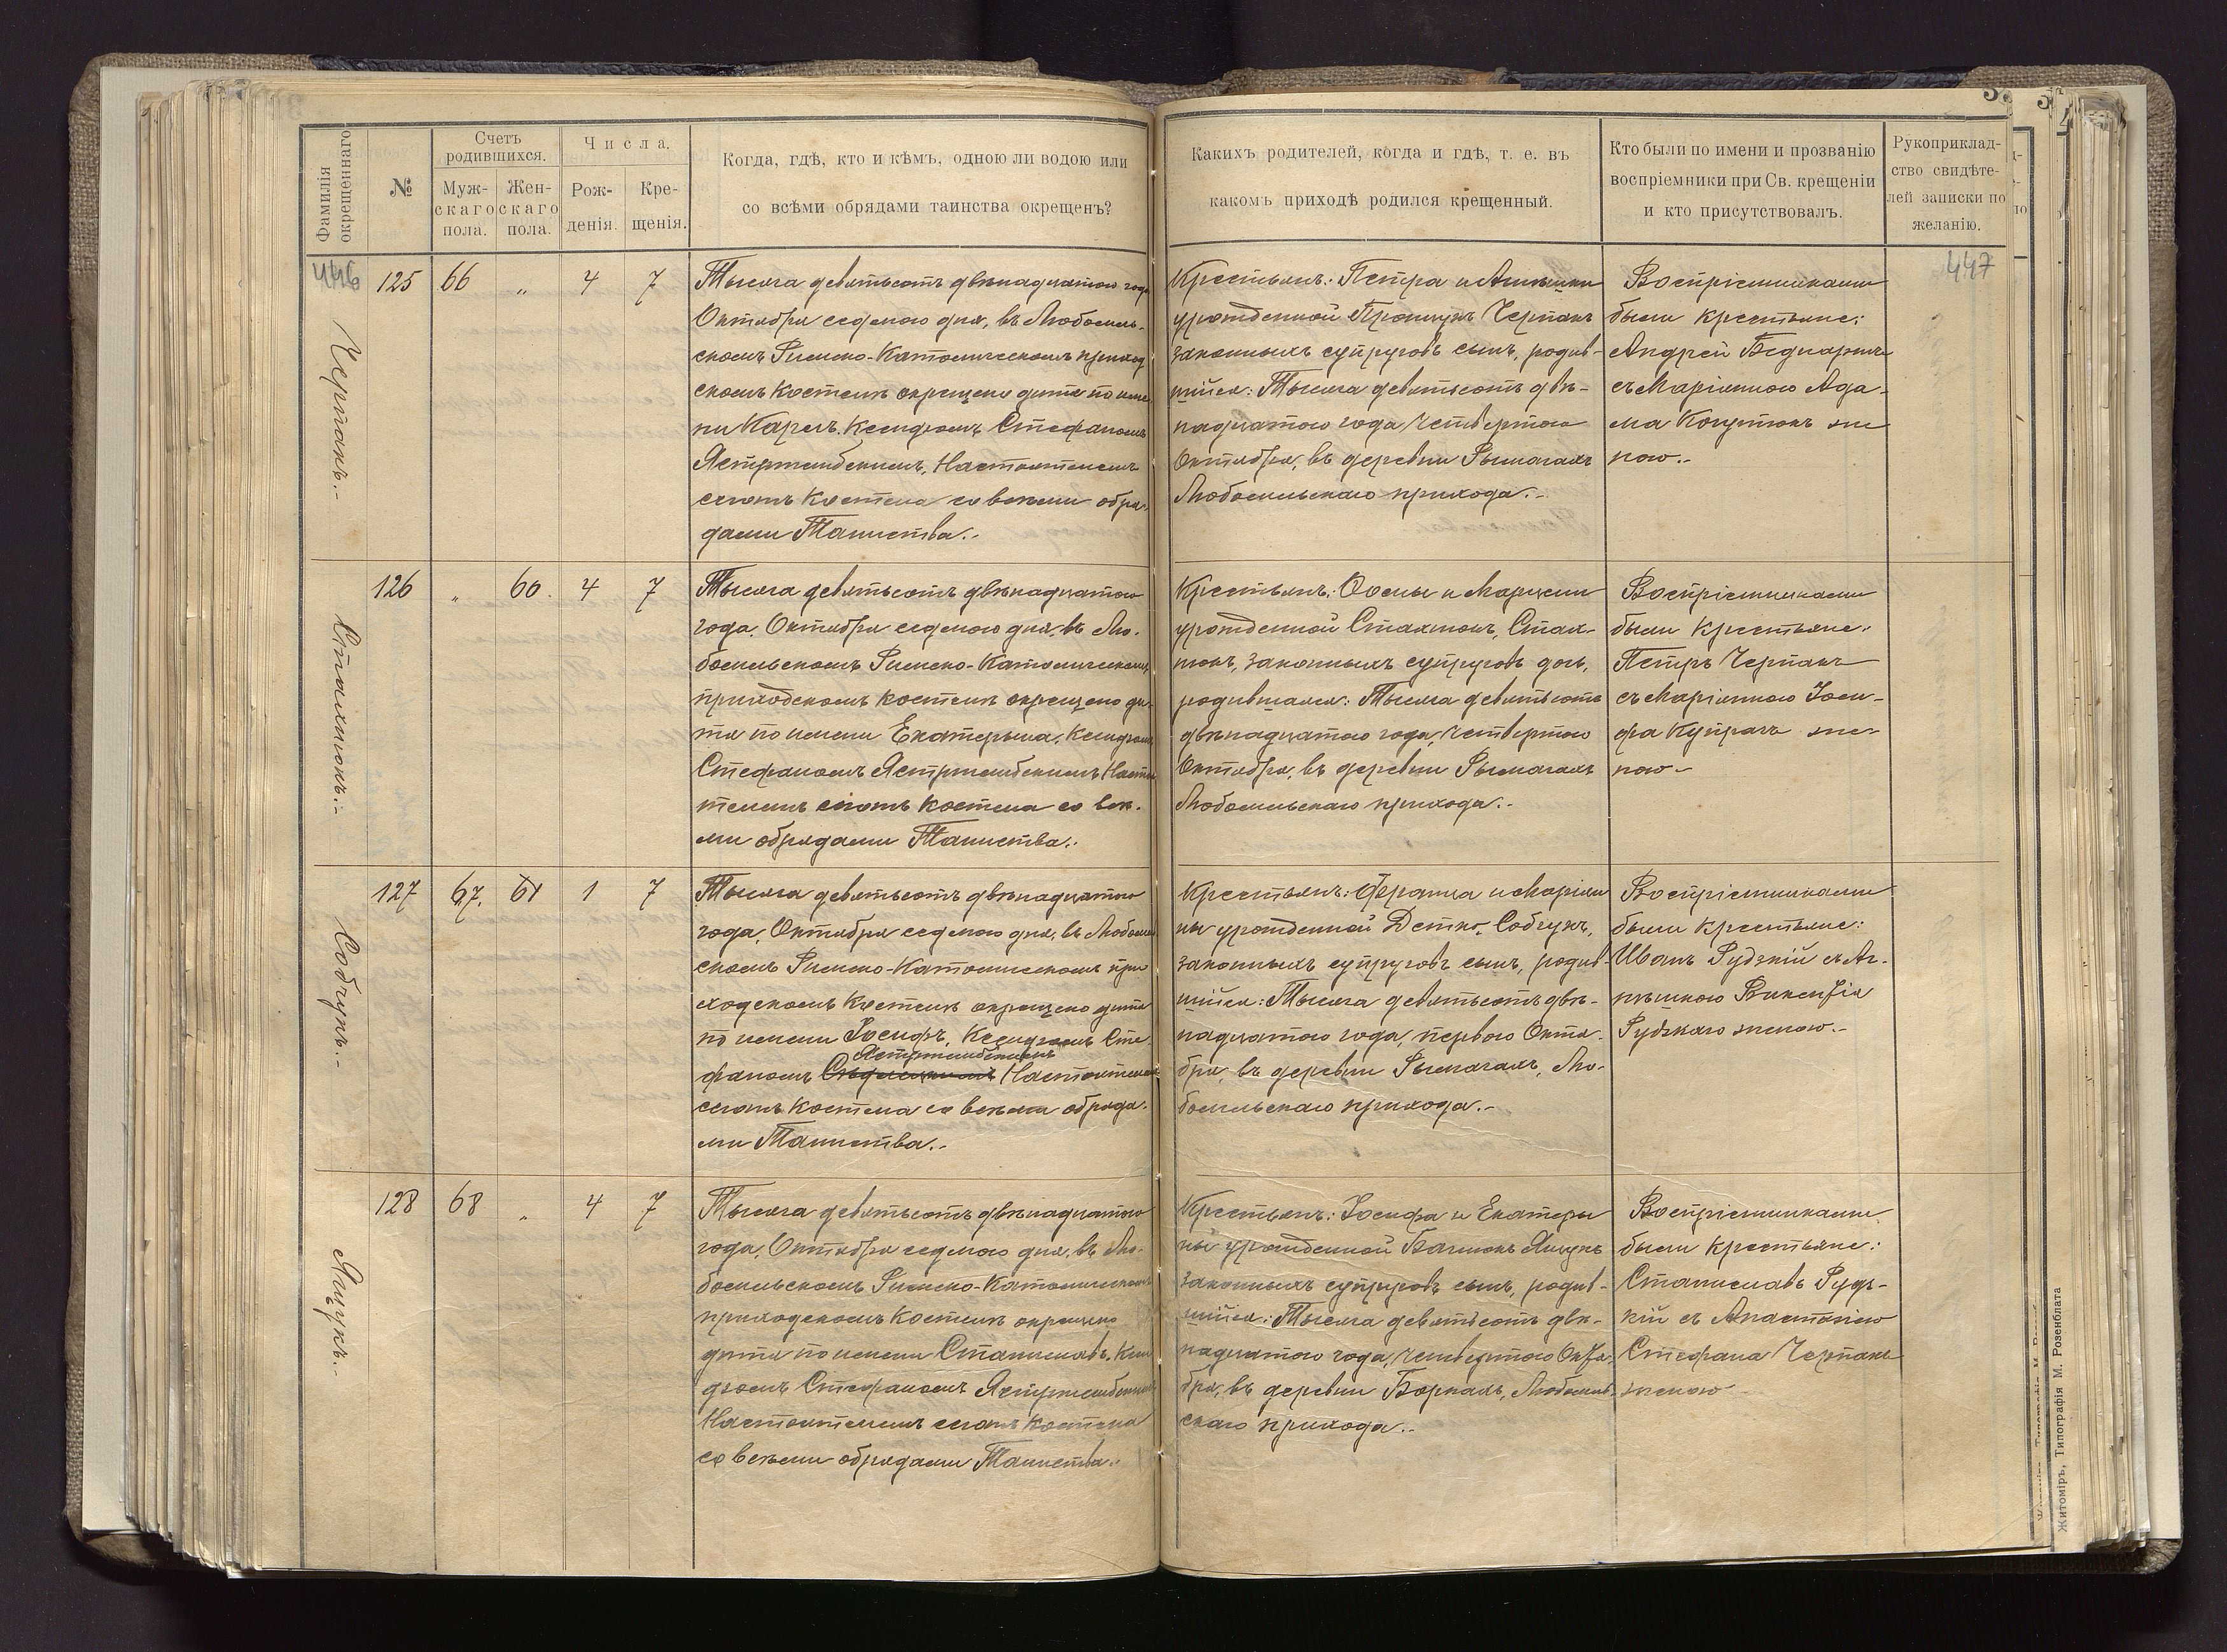 Фамилія
окрещеннаго
№
Счетъ
родившихся.
Муж-
скаго
пола.
Жен-
скаго
пола.
Числа.
Рож-
денія.
Кре-
щенія.
Когда, гдѣ, кто и кѣмъ, одною ли водою или
со всѣми обрядами таинства окрещенъ?
Какихъ родителей, когда и гдѣ, т. е. въ
какомъ приходѣ родился крещенный.
Кто были по имени и прозванію
воспріемники при Св. крещеніи
и кто присутствовалъ.
Рукоприклад-
ство свидѣте-
лей записки по
желанію.
446
447
Черпакъ.-
125 66 „ 4 7
Тысяча девятьсотъ двѣнадцатого года
Октября седьмого дня, въ Любомль-
скомъ Римско-Католическомъ приход
скомъ костелѣ окрещено дитя по име
ни Карлъ. Ксендзомъ Стефаномъ
Ястржембскимъ, Настоятелемъ
сегожъ костела со всѣми обря-
дами Таинства.-
Крестьянъ: Петра и
урожденной Черпакъ
законныхъ супруговъ сынъ, родив-
шійся: Тысяча девятьсотъ двѣ-
надцатого года четвертого
Октября, въ деревни Рымачахъ
Любомльскаго прихода.-
Воспріемниками
были крестьяне:
Андрей Беднарчикъ
съ Маріянною Ада-
ма же
ною.-
Сталнюкъ.-
126 „ 60. 4 7
Тысяча девятьсотъ двѣнадцатого
года, Октября седьмого дня, въ Лю-
бомльскомъ Римско-Католическомъ
приходскомъ костелѣ окрещено ди-
тя по имени Екатерина, Ксендзомъ
Стефаномъ Ястржембскимъ Настоя
телемъ сегожъ костела со всѣ-
ми обрядами Таинства.
Крестьянъ: и
урожденной
законныхъ супруговъ дочь,
родившаяся: Тысяча девятьсотъ
двѣнадцатого года, четвертого
Октября, въ деревни Рымачахъ
Любомльскаго прихода.-
Воспріемниками
были крестьяне:
Петръ Черпакъ
съ Маріянною Іоси-
фа Купрачъ же-
ною-
Собчукъ.-
127 67. 61 1 7
Тысяча девятьсотъ двѣнадцатого
года, Октября седьмого дня, въ Любомль
скомъ Римско-Католическомъ при
ходскомъ костелѣ окрещено дитя
по имени Іосифъ, Ксендзомъ Сте
Ястржембскимъ
фаномъ Настоятелемъ
сегожъ костела со всѣми обряда-
ми Таинства.-
Крестьянъ: Франца и Маріян
ны урожденной Детко, Собчукъ,
законныхъ супруговъ сынъ, родив-
шійся: Тысяча девятьсотъ двѣ-
надцатого года, первого Октя-
бря, въ деревни Рымачахъ, Лю-
бомльскаго прихода.-
Воспріемниками
были крестьяне:
Иванъ Рудзкій съ Аг-
нѣшкою Викентія
Рудзкаго женою.-
Ящукъ.-
128 68 „ 4 7
Тысяча девятьсотъ двѣнадцатого
года, Октября седьмого дня, въ Лю-
бомльскомъ Римско-Католическомъ
приходскомъ костелѣ окрещено
дитя по имени Станиславъ. Ксен
дзомъ Стефаномъ Ястржембскимъ
Настоятелемъ сегожъ костела
со всѣми обрядами Таинства.-
Крестьянъ: Іосифа и Екатери
ны урожденной Ящукъ
законныхъ супруговъ сынъ, родив-
шійся: Тысяча девятьсотъ двѣ-
надцатого года, четвертого Октя-
бря, въ деревни Боркахъ, Любомль-
скаго прихода.-
Воспріемниками
были крестьяне:
Станиславъ Рудз-
кій съ Анастасіею
Стефана Черпакъ
женою
Житоміръ, Типографія М. Розенблата